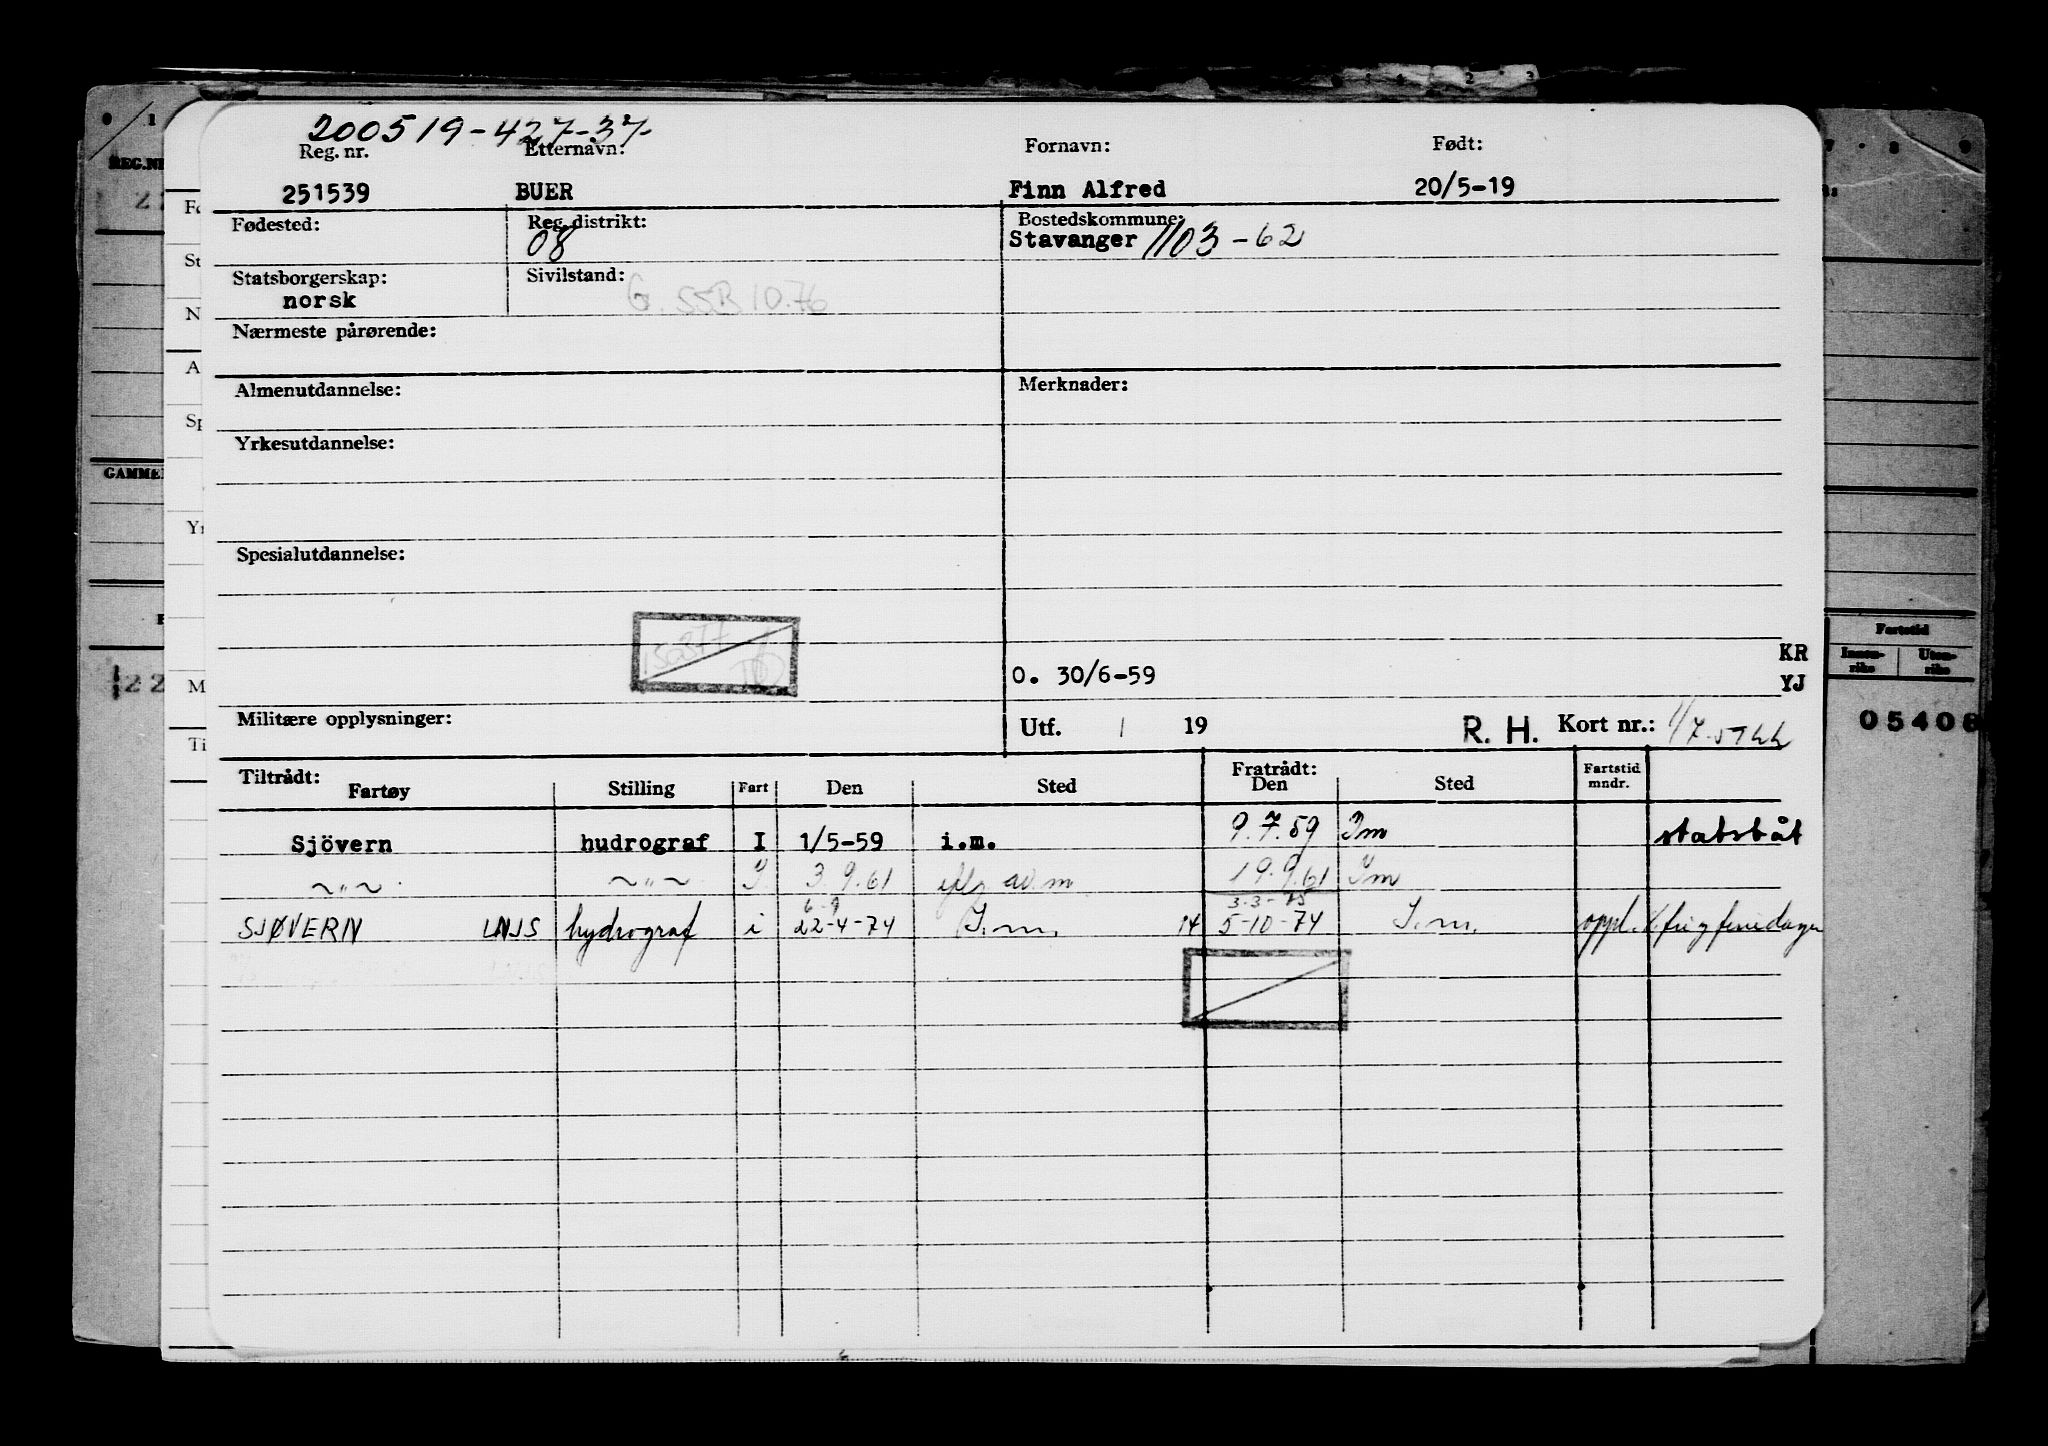 200519-427-37-
Reg. nr. Etternavn: Fornavn: Født:
251539 BUER Finn Alfred 20/5-19
Fødested: Reg. distrikt: Bostedskommune:
08 Stavanger 1103-62
Statsborgerskap: Sivilstand:
norsk G. SSB 10.76
Nærmeste pårørende:
Almenutdannelse: Merknader:
Yrkesutdannelse:
Spesialutdannelse:
KR
O. 30/6-59 YJ
Militære opplysninger: Utf. / 19 R. H. Kort nr.:
Tiltrådt: Fratrådt:
Fartøy Stilling Fart Den Sted Den Sted Fartstid mndr.
Sjövern hudrograf I 1/5-59 i.m. 9.7.59 Im statsbåt
~"~ ~"~ I 3.9.61 19.9.61 Im
6-9 3-3-75
SJØVERN LNJS hydrograf i 22-4-74 I.m. 14 5-10-74 I.m. oppl.
REG.NR
GAMMEL
Fartstid
Innen-riks Uten-riks
05408